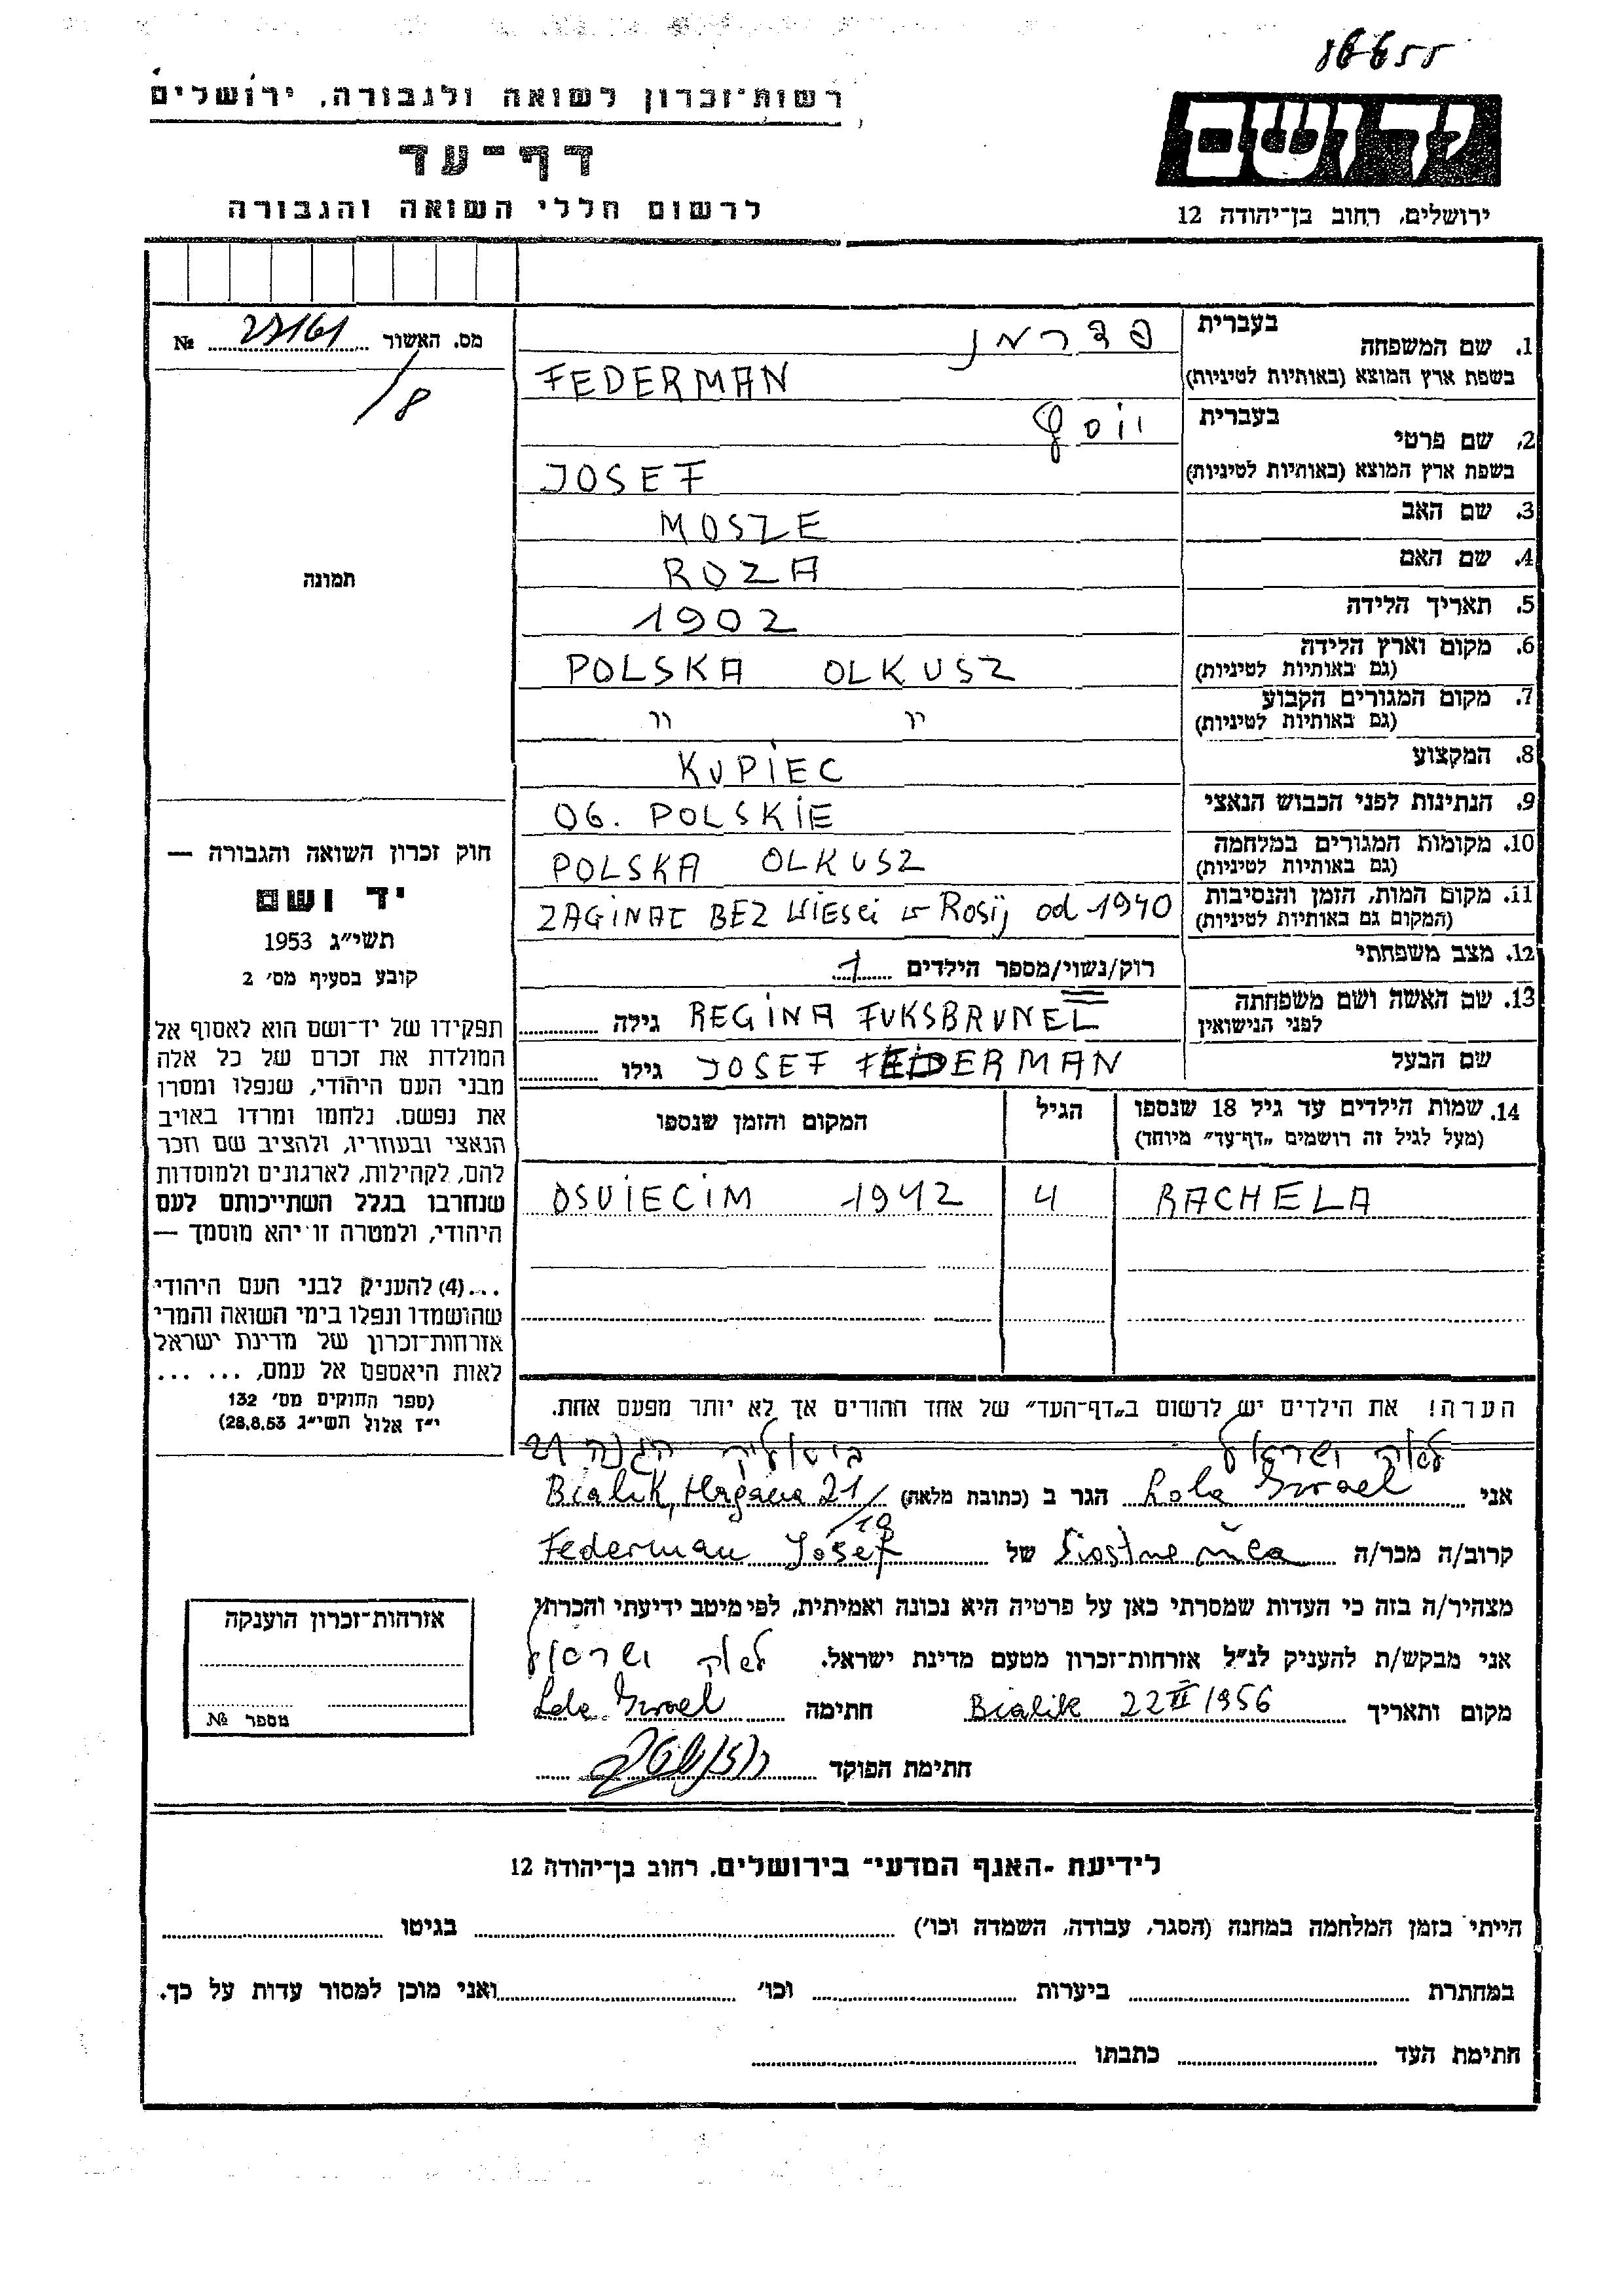 רשות־זכרון לשואה ולגבורה, ירושלים
יד ושם
דף־עד
לרשום חללי השואה והגבורה
ירושלים, רחוב בן־יהודה 12
מס. האשור № 
/8
תמונה
1. שם המשפחה בעברית פדרמן
בשפת ארץ המוצא (באותיות לטיניות) FEDERMAN
2. שם פרטי בעברית יוסף
בשפת ארץ המוצא (באותיות לטיניות) JOSEF
3. שם האב MOSZE
4. שם האם ROZA
5. תאריך הלידה 1902
6. מקום וארץ הלידה (גם באותיות לטיניות) POLSKA OLKUSZ
7. מקום המגורים הקבוע (גם באותיות לטיניות) " "
8. המקצוע KUPIEC
9. הנתינות לפני הכבוש הנאצי OG. POLSKIE
10. מקומות המגורים במלחמה (גם באותיות לטיניות) POLSKA OLKUSZ
11. מקום המות, הזמן והנסיבות (המקום גם באותיות לטיניות) ZAGINAŁ BEZ WIESCI w Rosij od 1940
12. מצב משפחתי רוק/נשוי/מספר הילדים 1
13. שם האשה ושם משפחתה לפני הנישואין REGINA FUKSBRUNEL גילה
שם הבעל JOSEF FEDERMAN גילו
14. שמות הילדים עד גיל 18 שנספו
(מעל לגיל זה רושמים „דף־עד״ מיוחד)
הגיל
המקום והזמן שנספו
RACHELA 4 OSVIECIM 1942
הערה! את הילדים יש לרשום ב„דף־העד״ של אחד ההורים אך לא יותר מפעם אחת.
חוק זכרון השואה והגבורה —
יד ושם
תשי״ג 1953
קובע בסעיף מס׳ 2
תפקידו של יד־ושם הוא לאסוף אל
המולדת את זכרם של כל אלה
מבני העם היהודי, שנפלו ומסרו
את נפשם, נלחמו ומרדו באויב
הנאצי ובעוזריו, ולהציב שם וזכר
להם, לקהילות, לארגונים ולמוסדות
שנחרבו בגלל השתייכותם לעם
היהודי, ולמטרה זו יהא מוסמך —
...(4) להעניק לבני העם היהודי
שהושמדו ונפלו בימי השואה והמרי
אזרחות־זכרון של מדינת ישראל
לאות היאספם אל עמם, ... ...
(ספר החוקים מס׳ 132
י״ז אלול תשי״ג 28.8.53)
הגנה 21
אני Lola Izrael הגר ב (כתובת מלאה) Bialik, Hagana 21/19
קרוב/ה מכר/ה Siostrenica של Federman Josef
מצהיר/ה בזה כי העדות שמסרתי כאן על פרטיה היא נכונה ואמיתית, לפי מיטב ידיעתי והכרתי
אני מבקש/ת להעניק לנ״ל אזרחות־זכרון מטעם מדינת ישראל.
מקום ותאריך Bialik 22 1956 חתימה Lola Izrael
חתימת הפוקד
אזרחות־זכרון הוענקה
מספר №
לידיעת ״האגף המדעי״ בירושלים, רחוב בן־יהודה 12
הייתי בזמן המלחמה במחנה (הסגר, עבודה, השמדה וכו׳) בגיטו
במחתרת ביערות וכו׳ ואני מוכן למסור עדות על כך.
חתימת העד כתבתו